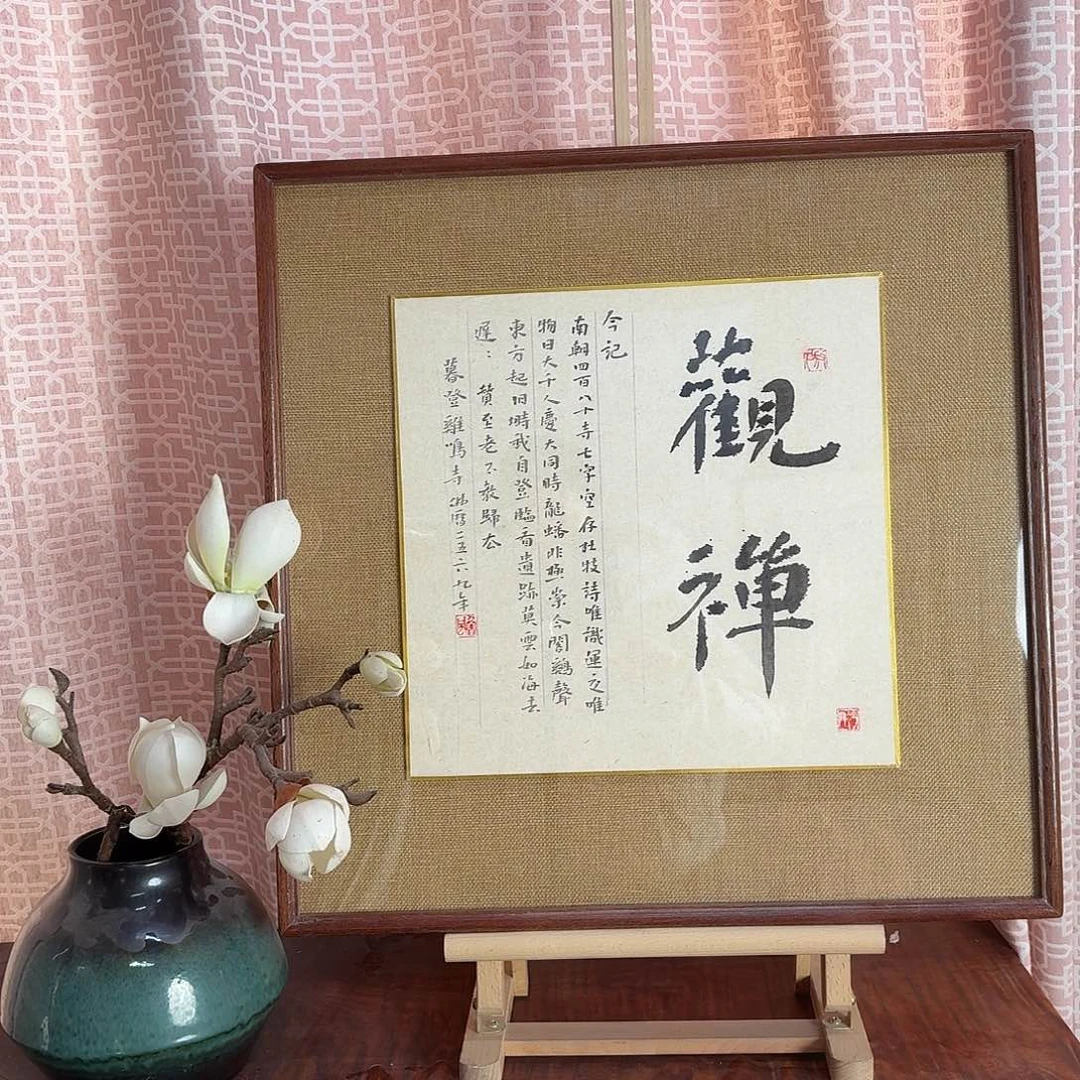 觀
禪
今記
南朝四百八十寺七字空存杜牧詩唯識運之唯
物日大千人慶大同時龍蟠非無崇今閣鷄聲
東方起旧塒我自登臨看遺跡莫雲如海去
遲：贊至老不教歸去
暮登雞鳴寺 佛曆二五六九年